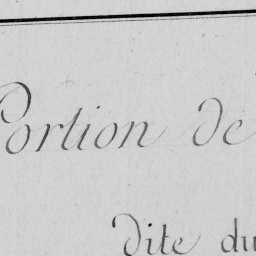 Portion de
dite du